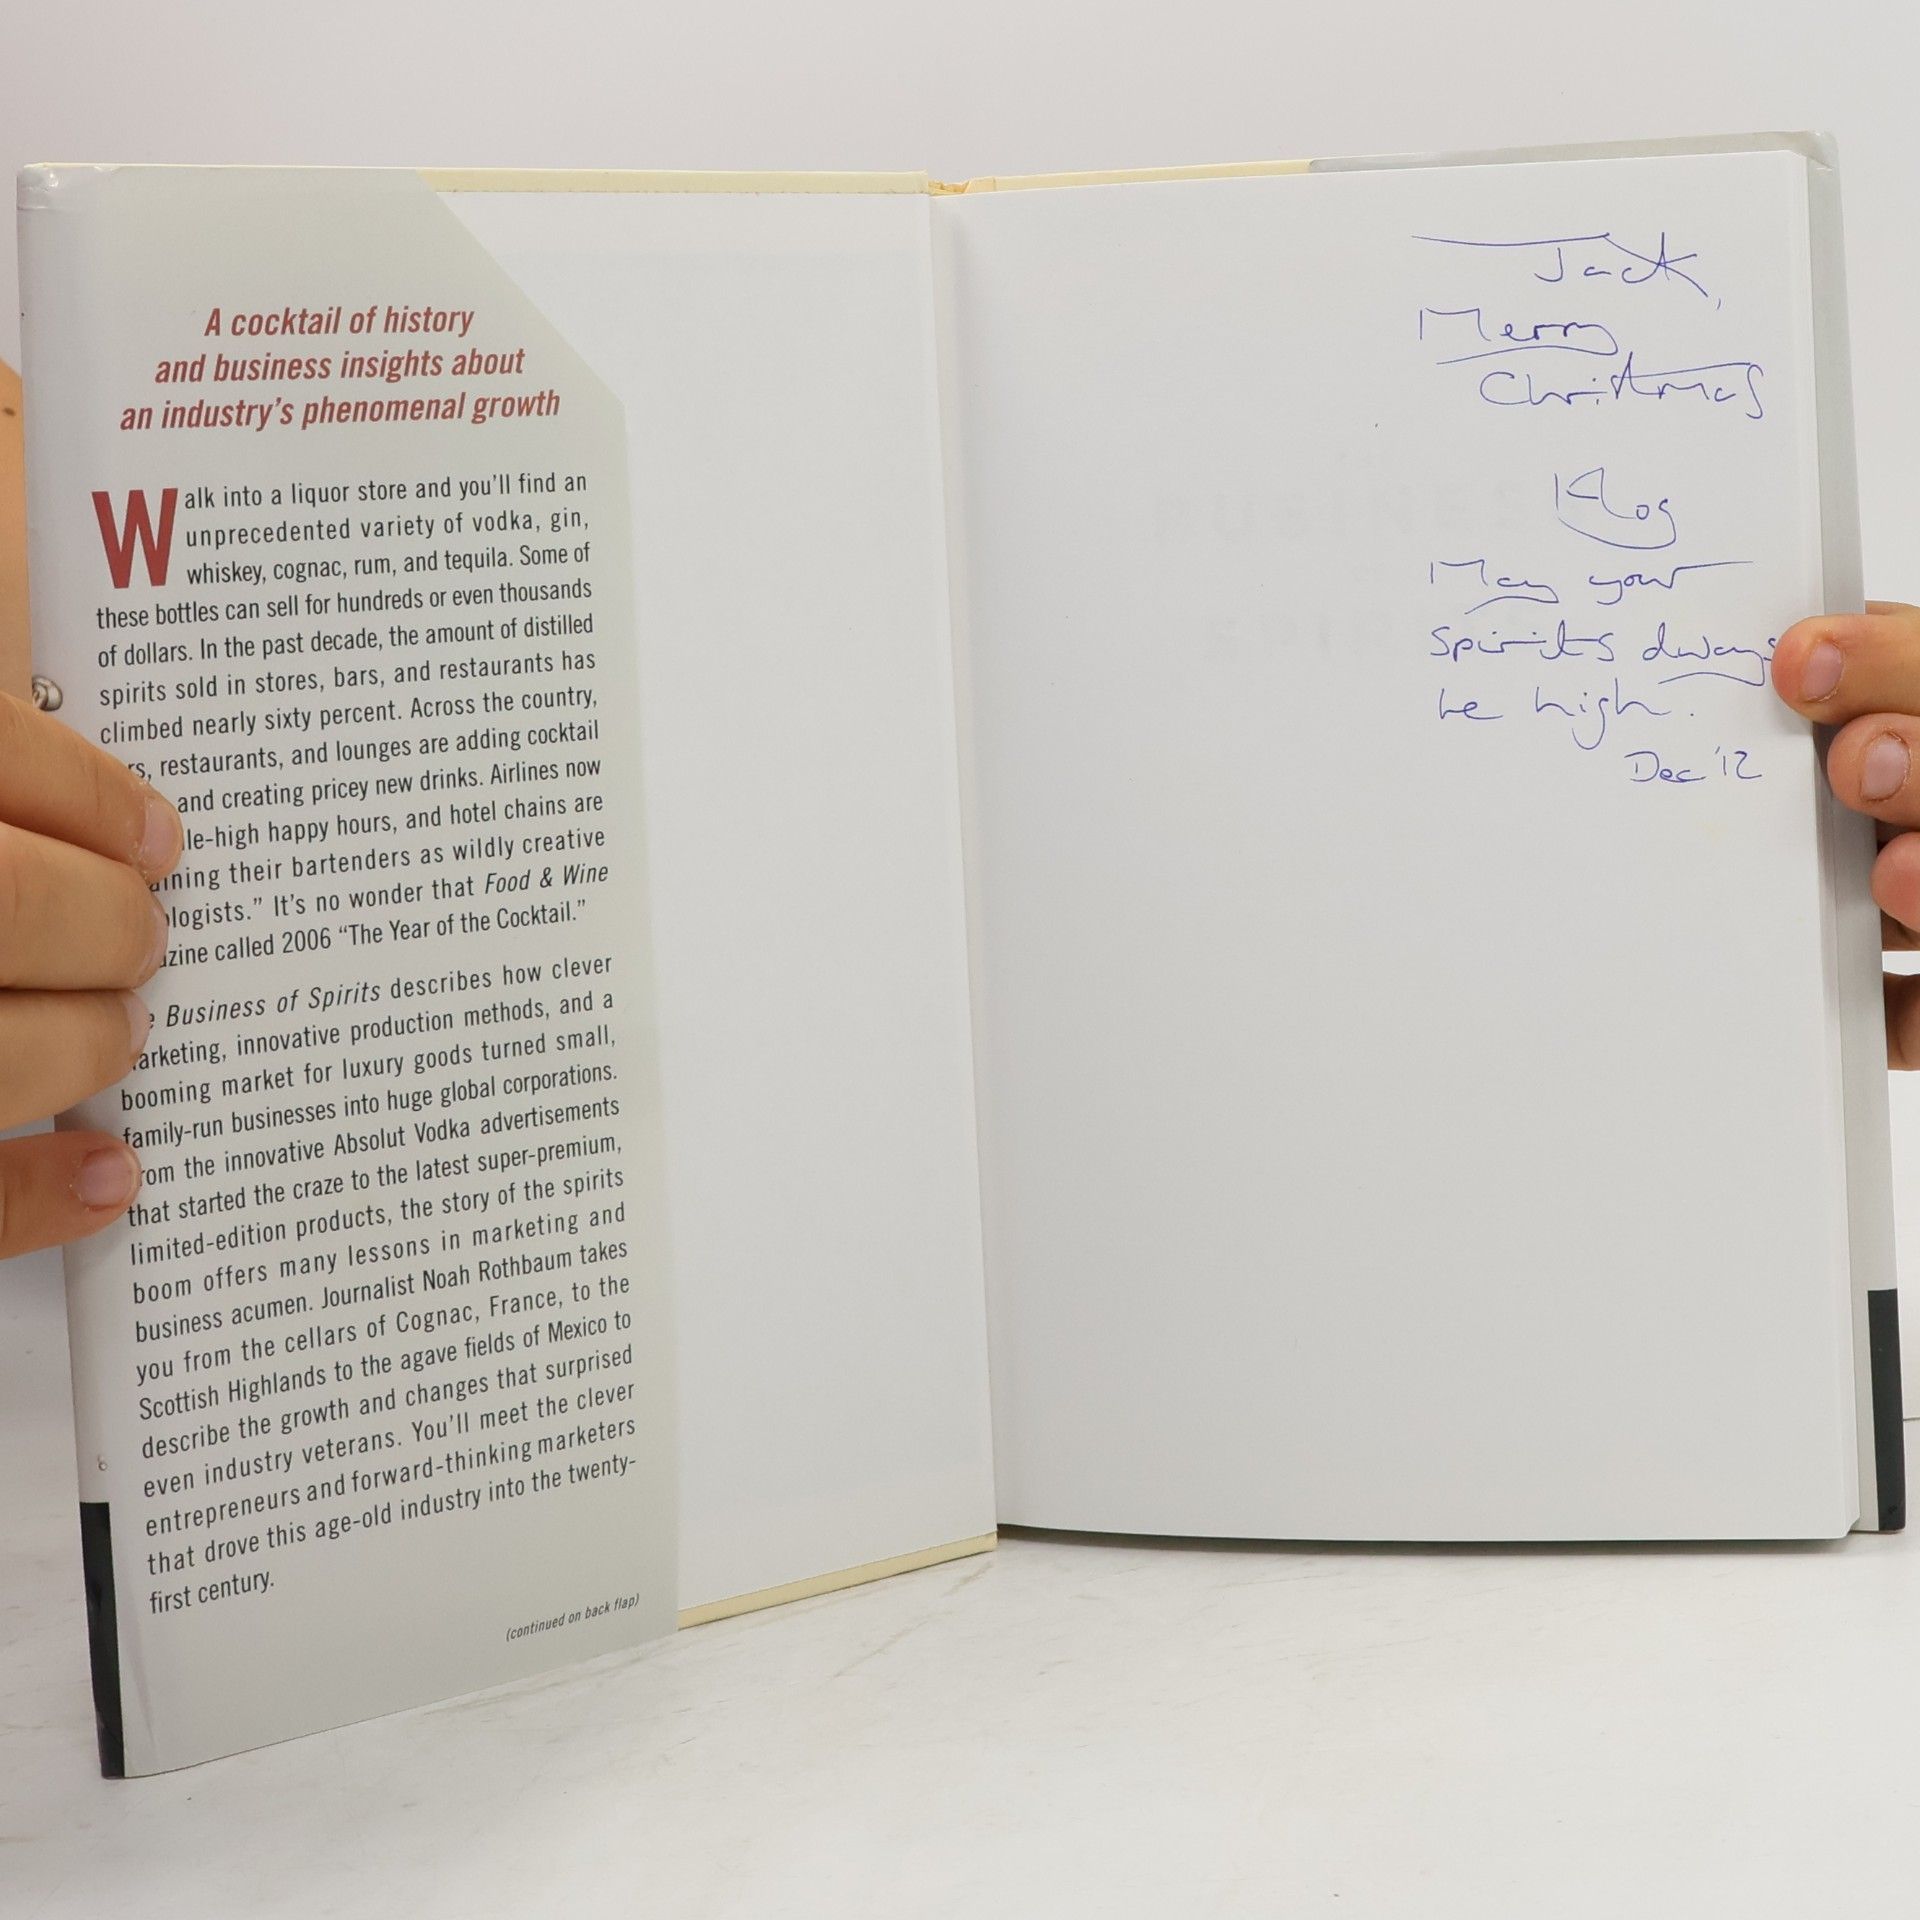 A cocktail of history
and business insights about
an industry's phenomenal growth
Walk into a liquor store and you'll find an
unprecedented variety of vodka, gin,
whiskey, cognac, rum, and tequila. Some of
these bottles can sell for hundreds or even thousands
of dollars. In the past decade, the amount of distilled
spirits sold in stores, bars, and restaurants has
climbed nearly sixty percent. Across the country,
rs, restaurants, and lounges are adding cocktail
and creating pricey new drinks. Airlines now
le-high happy hours, and hotel chains are
ining their bartenders as wildly creative
logists.” It's no wonder that Food & Wine
zine called 2006 “The Year of the Cocktail.”
e Business of Spirits describes how clever
arketing, innovative production methods, and a
booming market for luxury goods turned small,
family-run businesses into huge global corporations.
rom the innovative Absolut Vodka advertisements
that started the craze to the latest super-premium,
limited-edition products, the story of the spirits
boom offers many lessons in marketing and
business acumen. Journalist Noah Rothbaum takes
you from the cellars of Cognac, France, to the
Scottish Highlands to the agave fields of Mexico to
describe the growth and changes that surprised
even industry veterans. You'll meet the clever
entrepreneurs and forward-thinking marketers
that drove this age-old industry into the twenty-
first century.
(continued on back flap)
Jack,
Merry
Christmas
May your
spirits always
be high.
Dec '12